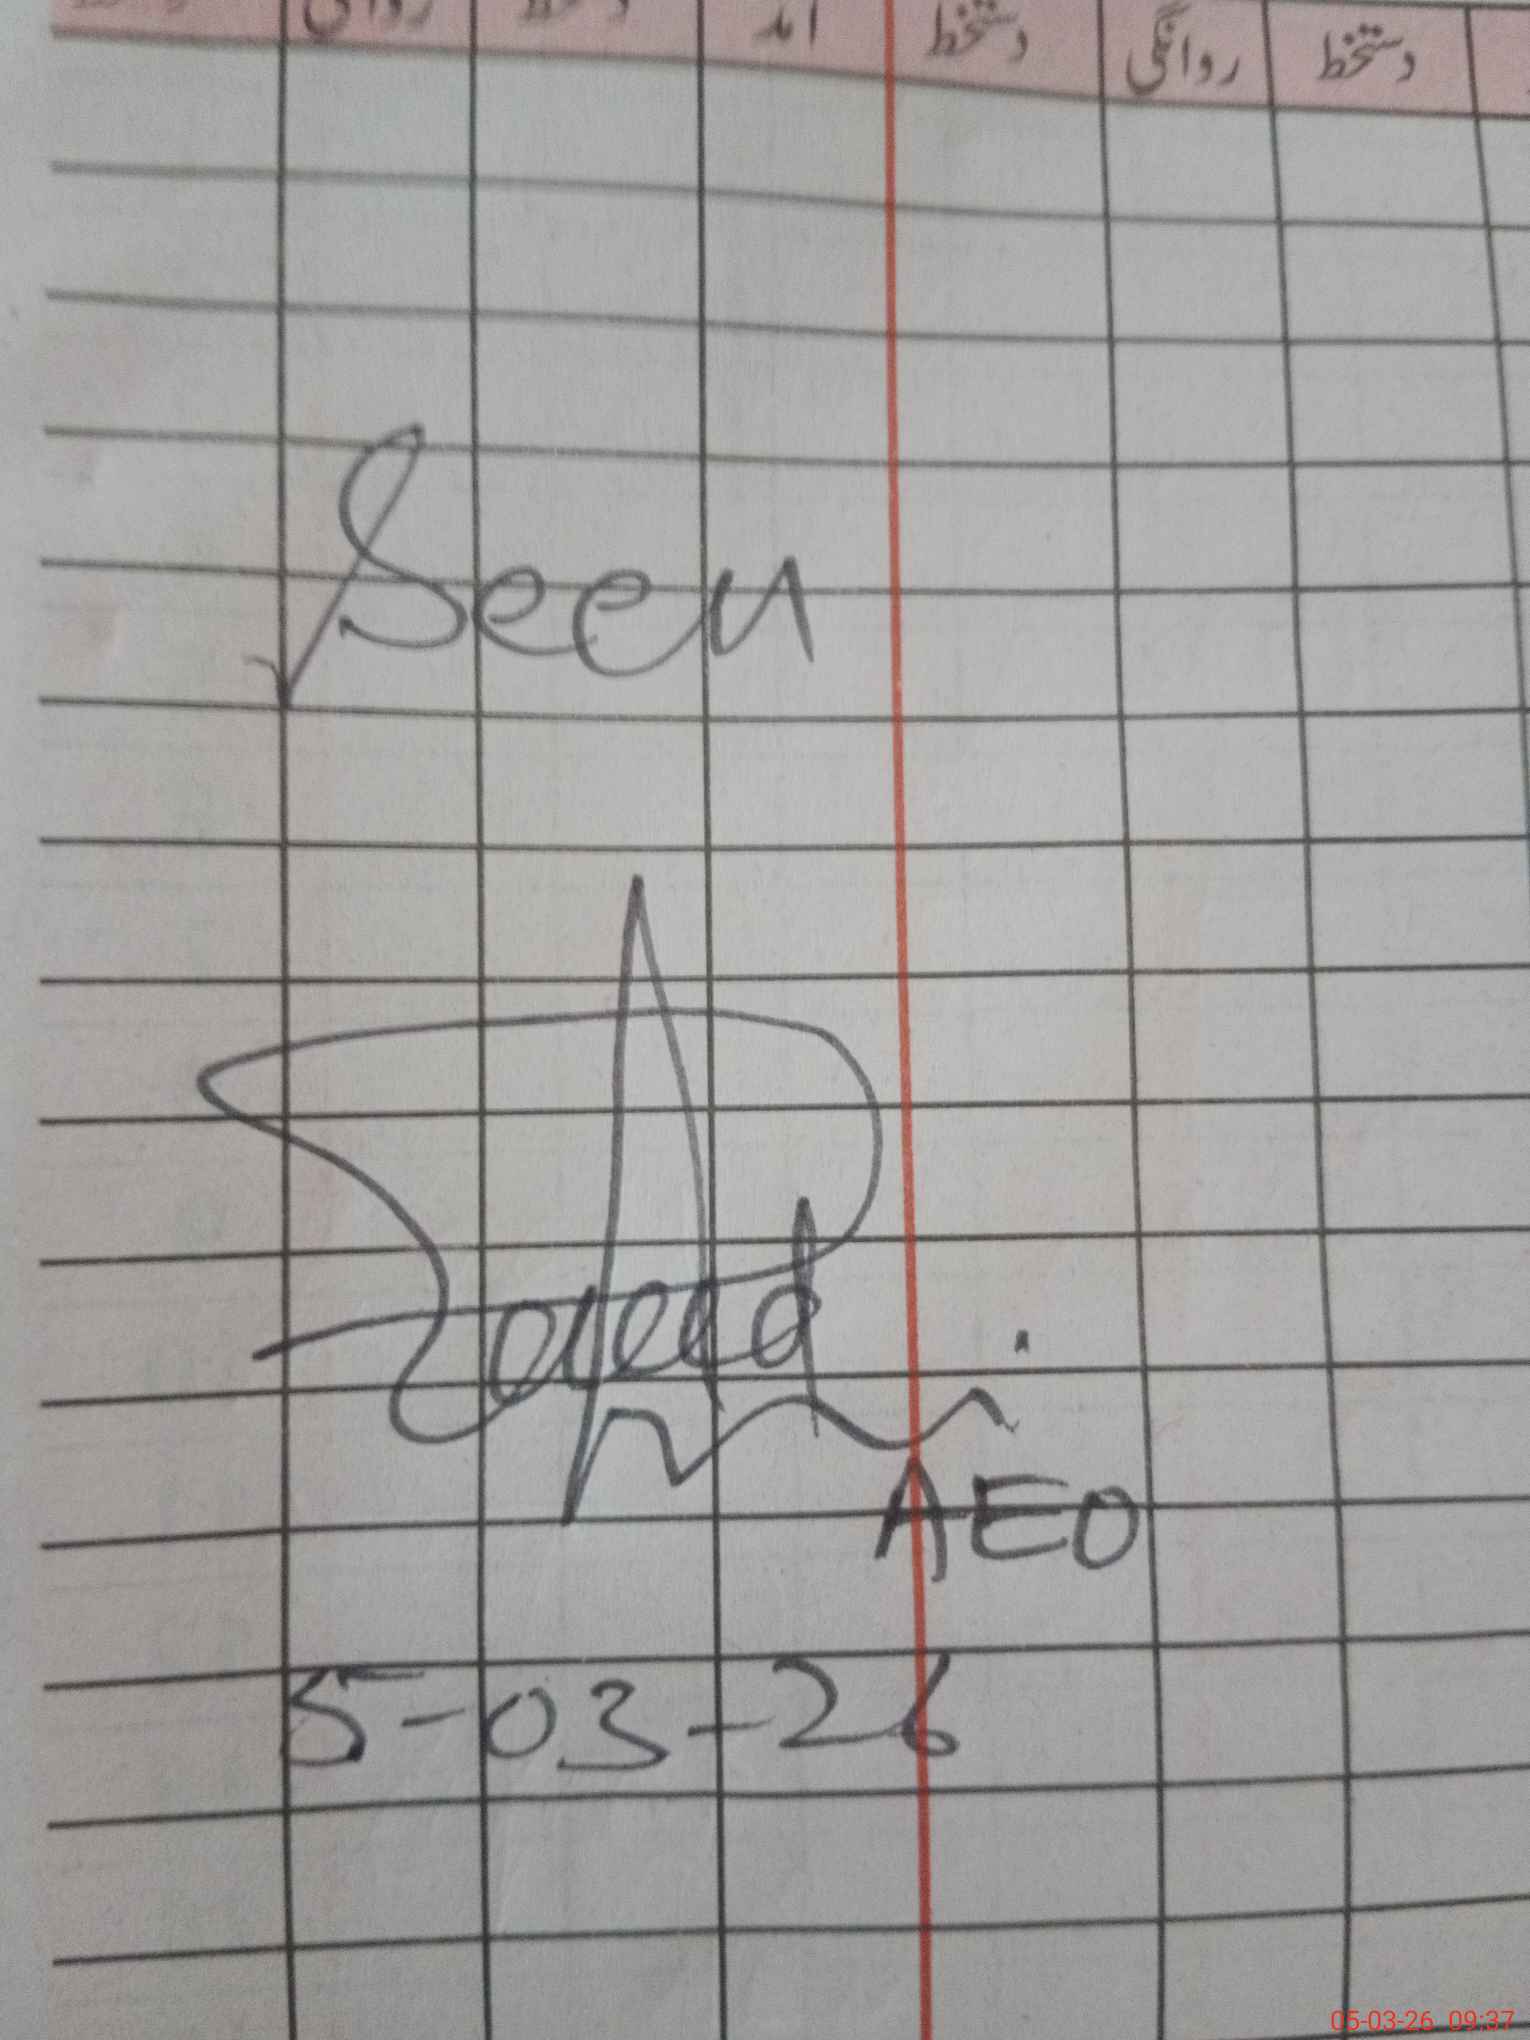 روانگی دستخط آمد دستخط روانگی دستخط
Seen
AEO
5-03-26
05-03-26 09:37